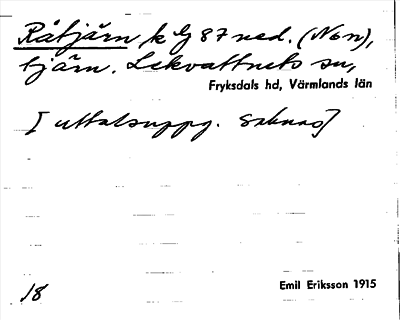 Råtjärn k G 87 ned. (Non),
tjärn. Lekvattnets sn,
Fryksdals hd, Värmlands län
[uttalsuppg. saknas]
18
Emil Eriksson 1915